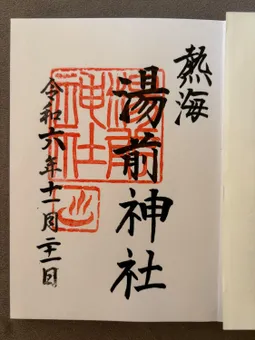 熱海
湯前神社
令和六年十一月二十一日
湯前
神社
♨